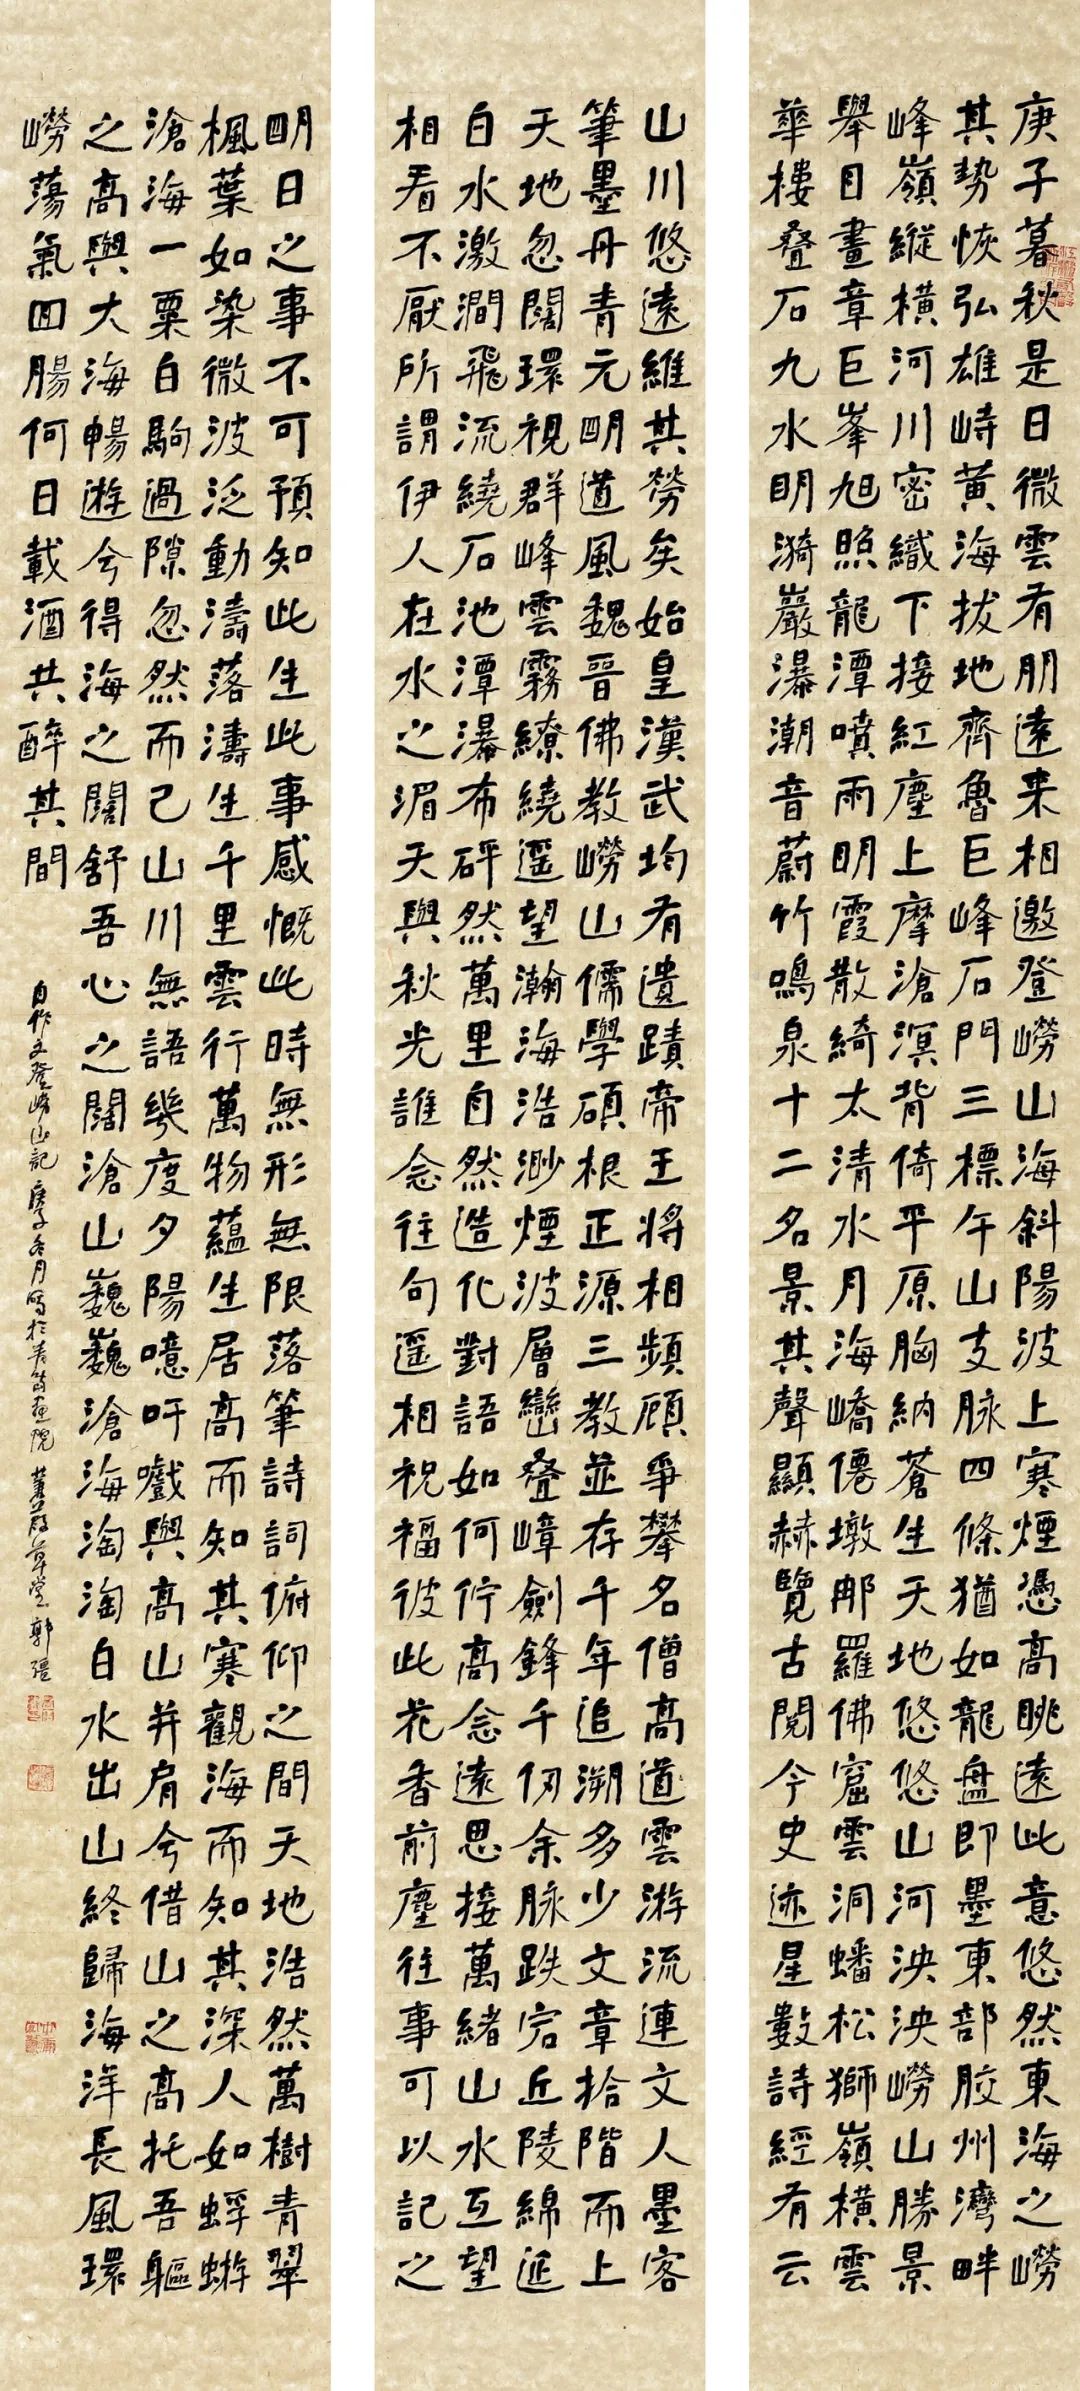 庚子暮秋是日微雲有朋遠来相邀登嶗山海斜陽波上寒煙憑高眺遠此意悠然東海之嶗
其勢恢弘雄峙黃海拔地齊魯巨峰石門三標午山支脉四條猶如龍盤即墨東部胶州灣畔
峰嶺縱橫河川密織下接紅塵上摩滄溟背倚平原胸納蒼生天地悠悠山河泱泱嶗山勝景
舉目畫章巨峯旭照龍潭噴雨明霞散綺太清水月海嶠僊墩那羅佛窟雲洞蟠松獅嶺橫雲
華樓叠石九水明漪巖瀑潮音蔚竹鳴泉十二名景其聲顯赫覽古閱今史迹星數詩經有云
山川悠遠維其勞矣始皇漢武均有遺蹟帝王將相頻顧爭攀名僧高道雲游流連文人墨客
筆墨丹青元明道風魏晉佛教嶗山儒學碩根正源三教並存千年追溯多少文章拾階而上
天地忽闊環視群峰雲霧繚繞遥望瀚海浩渺煙波層巒叠嶂劍鋒千仞余脉跌宕丘陵綿延
白水激澗飛流繞石池潭瀑布砰然萬里自然造化對語如何佇高念遠思接萬緒山水互望
相看不厭所謂伊人在水之湄天與秋光誰念往句遥相祝福彼此花香前塵往事可以記之
明日之事不可預知此生此事感慨此時無形無限落筆詩詞俯仰之間天地浩然萬樹青翠
楓葉如染微波泛動濤落濤生千里雲行萬物蘊生居高而知其寒觀海而知其深人如蜉蝣
滄海一粟白駒過隙忽然而己山川無語幾度夕陽噫吁戲與高山并肩今借山之高托吾軀
之高與大海暢遊今得海之闊舒吾心之闊滄山巍巍滄海淘淘白水出山終歸海洋長風環
嶗蕩氣回腸何日載酒共醉其間
自作文登嶗山記庚子冬月寫於青島畫院 草堂郭强